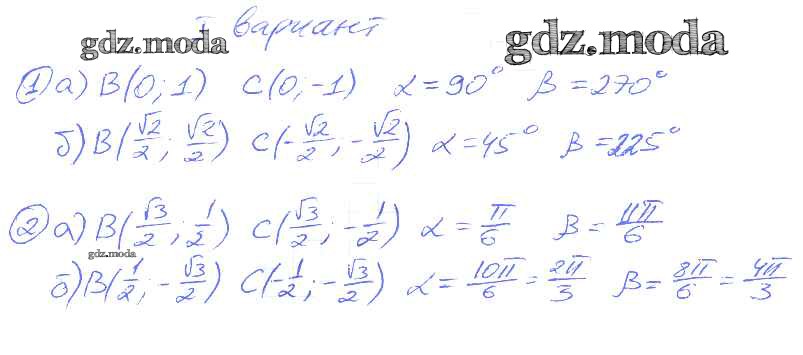 I вариант
gdz.moda gdz.moda
① а) B(0; 1) C(0; -1) α = 90° β = 270°
б) B(√2/2; √2/2) C(-√2/2; -√2/2) α = 45° β = 225°
② а) B(√3/2; 1/2) C(√3/2; -1/2) α = π/6 β = 11π/6
gdz.moda
б) B(1/2; -√3/2) C(-1/2; -√3/2) α = 10π/6 = 2π/3 β = 8π/6 = 4π/3